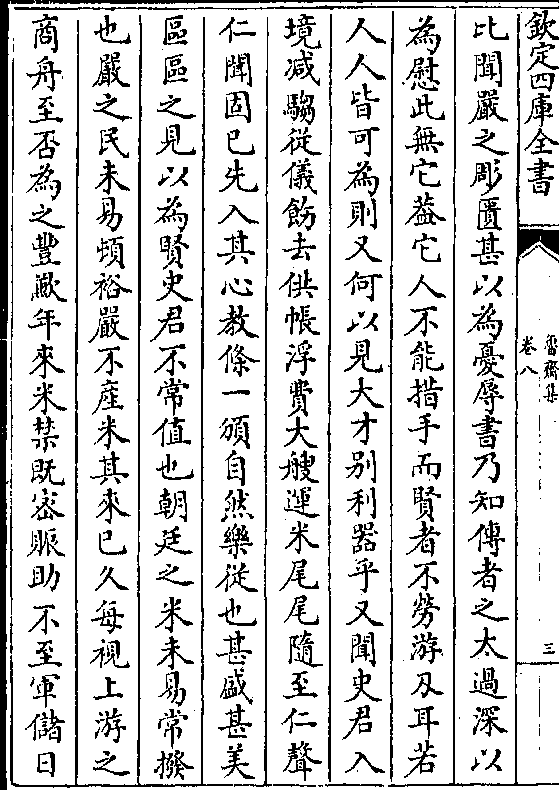 欽定四庫全書
魯齋集
卷八
三
比聞嚴之彫匱甚以為憂辱書乃知傳者之太過深以
為慰此無它葢它人不能措手而賢者不勞游刃耳若
人人皆可為則又何以見大才别利器乎又聞史君入
境减騶從儀飭去供帳浮費大艘運米尾尾隨至仁聲
仁聞固已先入其心教條一頒自然樂從也甚盛甚美
區區之見以為賢史君不常值也朝廷之米未易常撥
也嚴之民未易頓裕嚴不產米其來已久每視上游之
商舟至否為之豐歉年來米禁既密賑助不至軍儲日